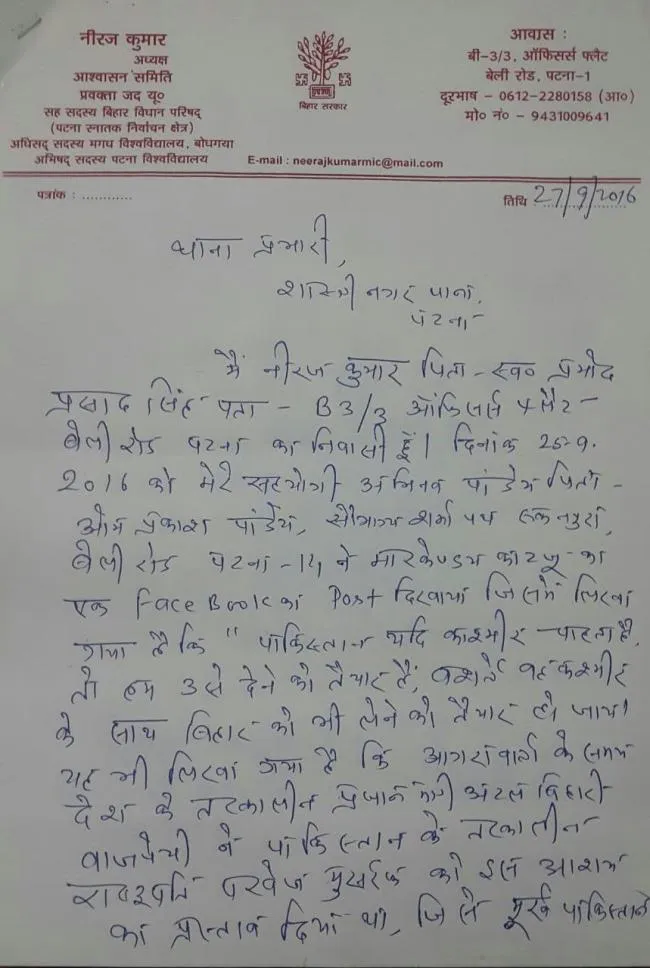 नीरज कुमार
अध्यक्ष
आश्वासन समिति
प्रवक्ता जद यू०
सह सदस्य बिहार विधान परिषद्
(पटना स्नातक निर्वाचन क्षेत्र)
अधिसद् सदस्य मगध विश्वविद्यालय, बोधगया
अभिषद् सदस्य पटना विश्वविद्यालय
बिहार सरकार
E-mail : neerajkumarmic@mail.com
आवास :
बी-3/3, ऑफिसर्स फ्लैट
बेली रोड, पटना-1
दूरभाष - 0612-2280158 (आ०)
मो० नं० - 9431009641
पत्रांक : ............
तिथि : 27/9/2016
थाना प्रभारी,
शास्त्री नगर थाना,
पटना
मैं नीरज कुमार पिता - स्व० प्रमोद
प्रसाद सिंह पता - B 3/3 ऑफिसर्स फ्लैट -
बेली रोड पटना का निवासी हूँ। दिनांक 25-9-
2016 को मेरे सहयोगी अभिनव पांडेय पिता -
ओम प्रकाश पांडेय, शर्मा पथ
बेली रोड पटना - 14 ने मारकेण्डय काटजू का
एक Face Book का Post दिखाया जिसमें लिखा
गया है कि " पाकिस्तान यदि काश्मीर चाहता है,
तो हम उसे देने को तैयार हैं, बशर्ते वह कश्मीर
के साथ बिहार को भी लेने को तैयार हो जाय।
यह भी लिखा गया है कि आगरा वार्ता के समय
देश के तत्कालीन प्रधान मंत्री अटल बिहारी
वाजपेयी ने पाकिस्तान के तत्कालीन
राष्ट्रपति परवेज मुशर्रफ को इस आशय
का प्रस्ताव दिया था, जिसे मूर्ख पाकिस्तानी